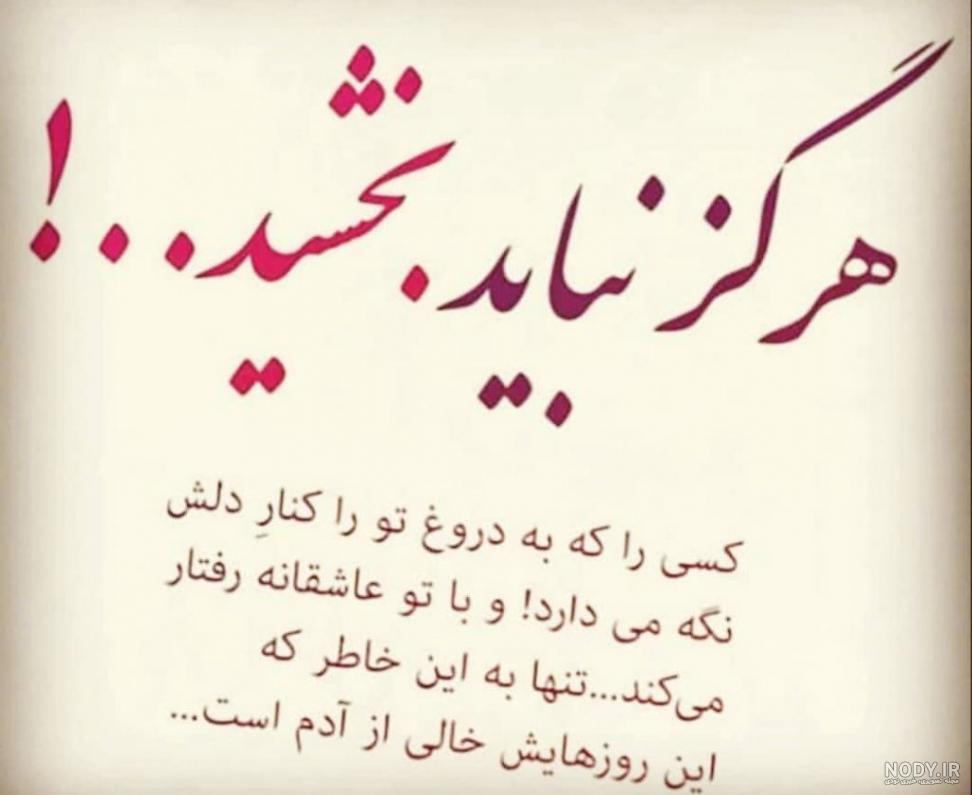 هرگز نباید بخشید..!
کسی را که به دروغ تو را کنارِ دلش
نگه می دارد! و با تو عاشقانه رفتار
می‌کند...تنها به این خاطر که
این روزهایش خالی از آدم است...
NODY.IR
مجله تصویری، خبری نودی